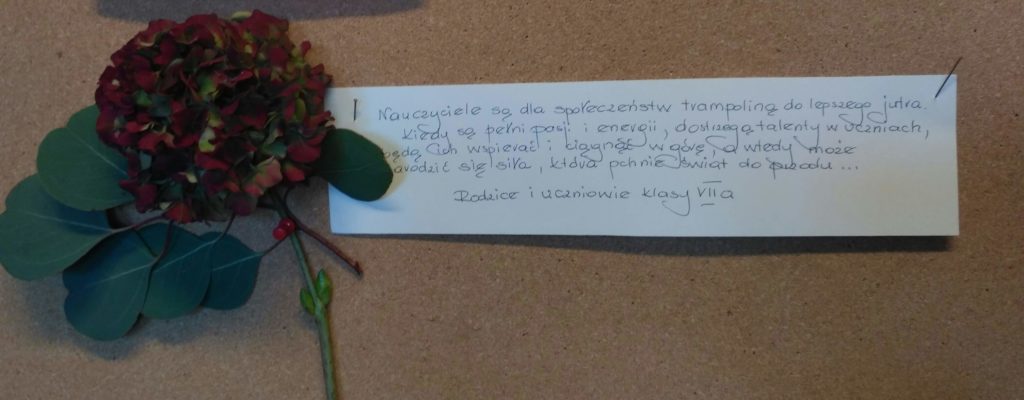 Nauczyciele są dla społeczeństw trampoliną do lepszego jutra.
Kiedy są pełni pasji i energii, dostrzegą talenty w uczniach,
będą ich wspierać i ciągnąć w górę, a wtedy może
narodzić się siła, która pchnie świat do przodu ...
Rodzice i uczniowie klasy VII a